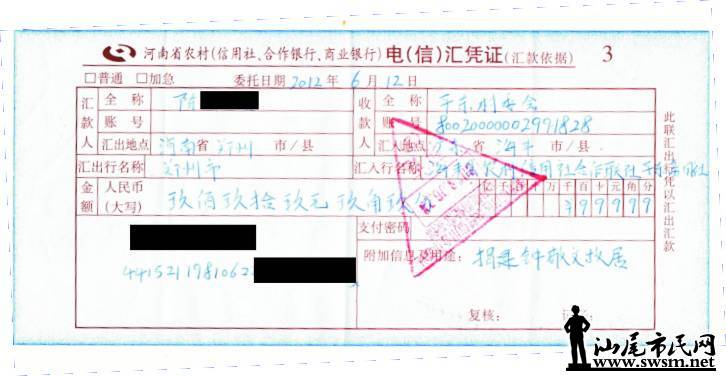 河南省农村(信用社、合作银行、商业银行) 电(信)汇凭证(汇款依据) 3
□普通 □加急 委托日期 2012 年 6 月 12 日
汇款人 全称 陈
收款人 全称
账号
账号 80020000002991828
汇出地点 河南 省 郑州 市/县
汇入地点 广东 省 海丰 市/县
汇出行名称 郑州市
汇入行名称
金额 人民币(大写) 玖佰玖拾玖元玖角玖分
亿 千 百 十 万 千 百 十 元 角 分
¥ 9 9 9 9 9
支付密码
4415211981062
附加信息及用途: 捐集钟敬文故居
复核:
此联汇出行凭以汇出汇款
汕尾市民网
www.swsm.net